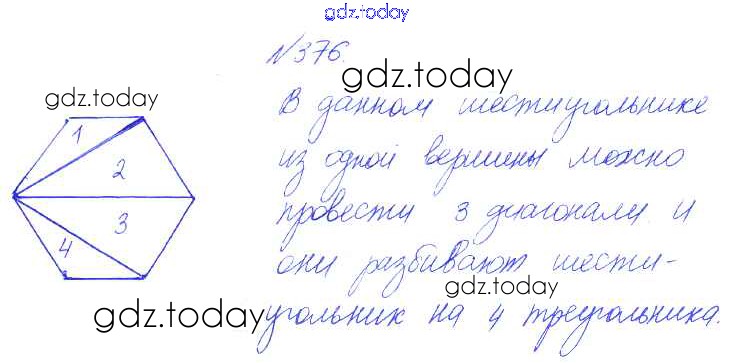 gdz.today
№376.
gdz.today
gdz.today
В данном шестиугольнике
1
2
из одной вершины можно
3
провести 3 диагонали и
4
они разбивают шести-
gdz.today
gdz.today
угольник на 4 треугольника.
gdz.today